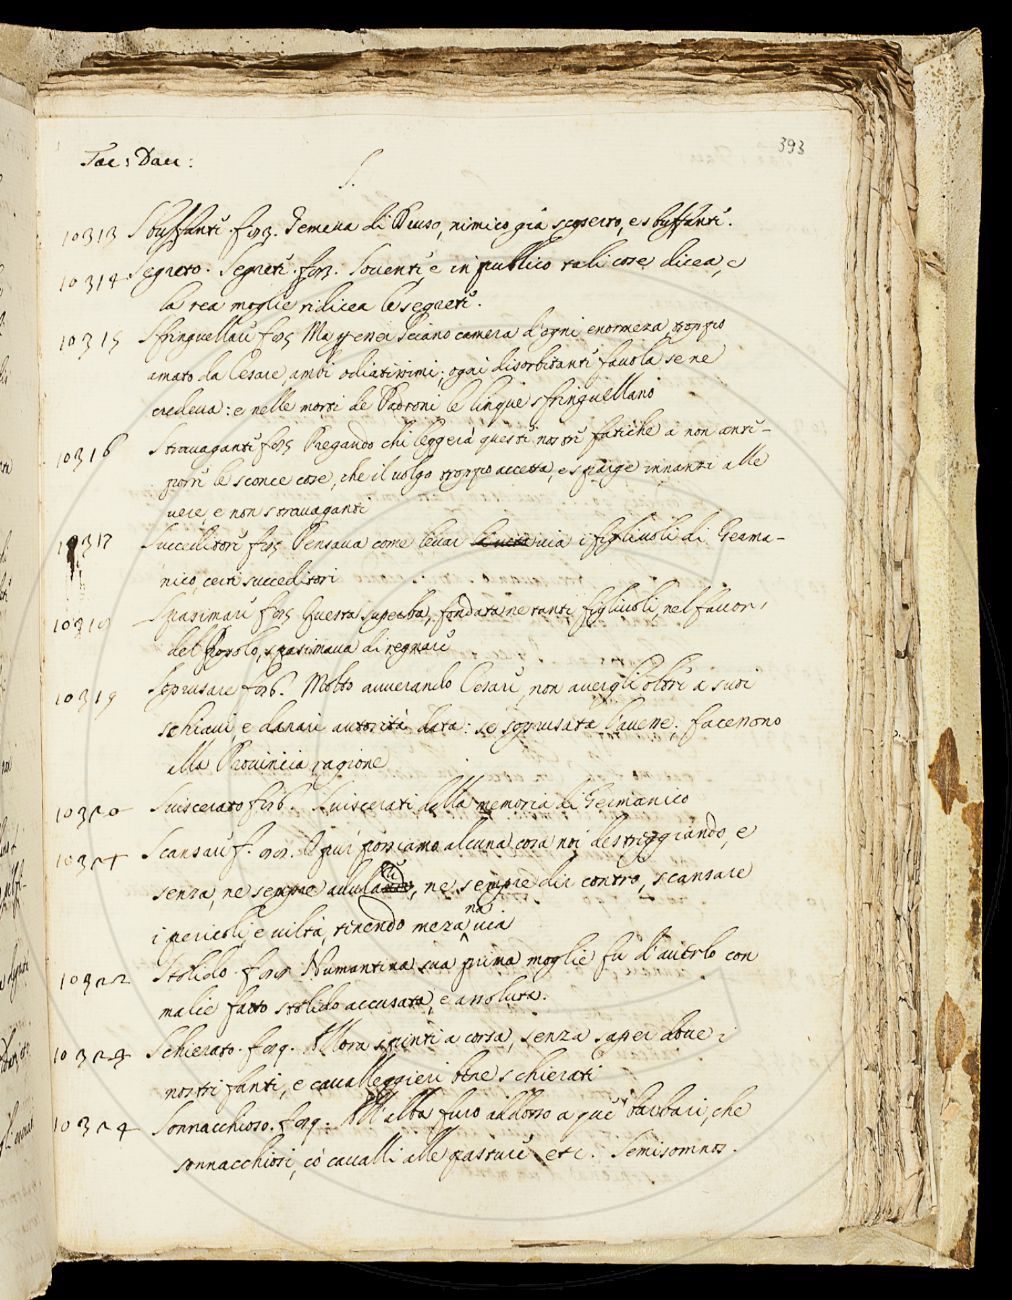 393
Tac: Dau:
S.
10313 Sbuffanti. for3. Temeua di Druso, nimico già scoperto, e sbuffanti.
10314 Segreto. Segreti. for3. Souenti, e in publico tali cose dicea, e
la rea moglie ridicea le segreti.
10315 Sfringuellari for3 Ma essersi Seiano camera d'ogni enormeza troppo
amato da Cesare, ambi odiatissimi; ogni disorbitanti fauola se ne
credeua: e nelle morti de Padroni le lingue sfringuellano
10316 Strauaganti for3 Pregando chi leggerà questi nostri fatiche a non anti-
porri le sconce cose, che il uolgo troppo accetta, e spaige innanti alle
uere, e non strauaganti
10317 Succeditori for3 Pensaua come leuar uia i figliuoli di Germa-
nico, certi succeditori
Spasimari for3 Questa superba, fondata ne tanti figliuoli, nel fauor,
del Popolo, spasimaua di regnari
10319 Soprusare for6. Molto auuerando Cesari, non auergli oltri a suoi
schiaui e danari autorità data: se soprusata l'auerre; facessono
alla Prouincia ragione
10320 Suiscerato for6. Suiscerati della memoria di Germanico
Scansari f. for. O pur possiamo alcuna cosa noi destreggiando, e
senza, ne sempre ne sempre dir contro, scansare
i pericoli, e uiltà, tenendo mezana uia
10322 Stolido. for Numantina sua prima moglie fu d'auerlo con
malie fatto stolido accusata, e assoluta.
10323 Schierato. for9. Allora spinti a corsa, senza saper doue i
nostri fanti, e caualleggieri oltre schierati
10324 Sonnacchioso. for9. All'alba furo addosso a que' barbari, che
sonnacchiosi, co' caualli alle pasturi etc. Semisomnos.